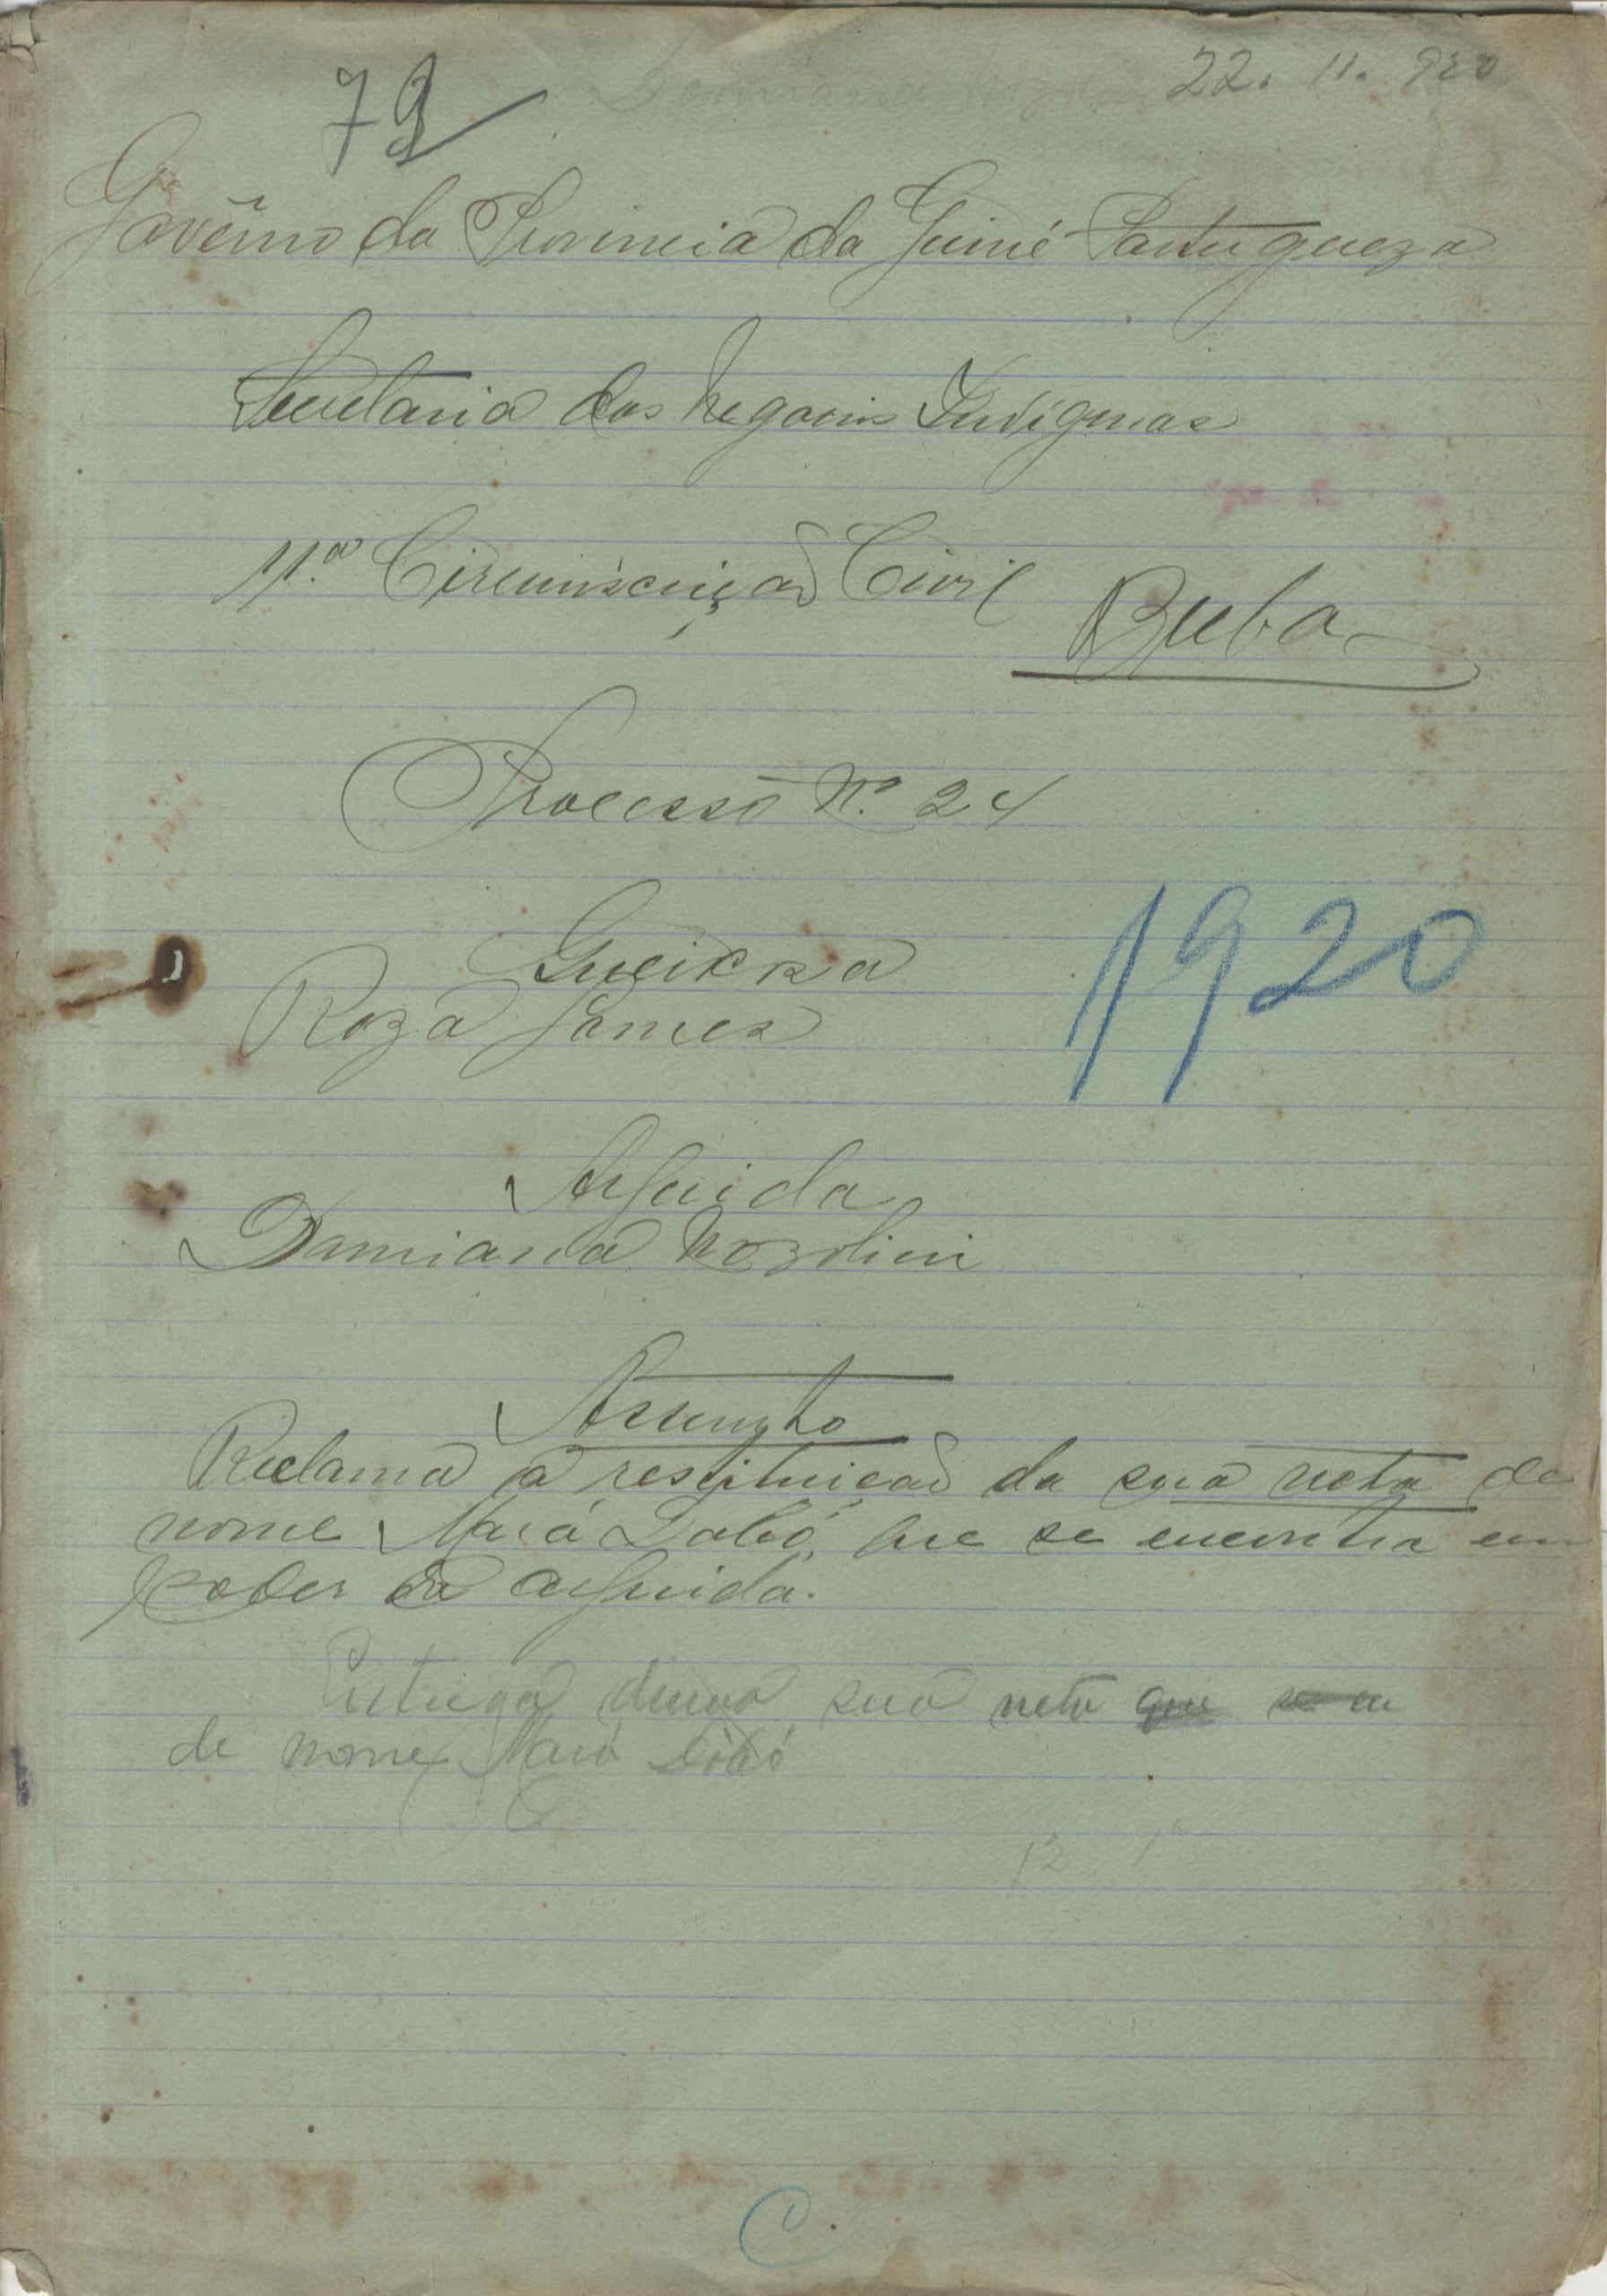 22. 11. 920
79
Govêrno da Provincia da Guiné Portugueza
Secretaria dos Negocios Indigenas
11.ª Circunscrição Civil Buba
Processo N.º 24
Queixosa
Roza Gomes
1920
Arguida
Damiana Nozolini
Assumpto
Reclama a restituicão da sua neta de
nome Maiá Dabó, que se encontra em
poder da arguida.
Entrega duma sua neta que se en
de nome
C.